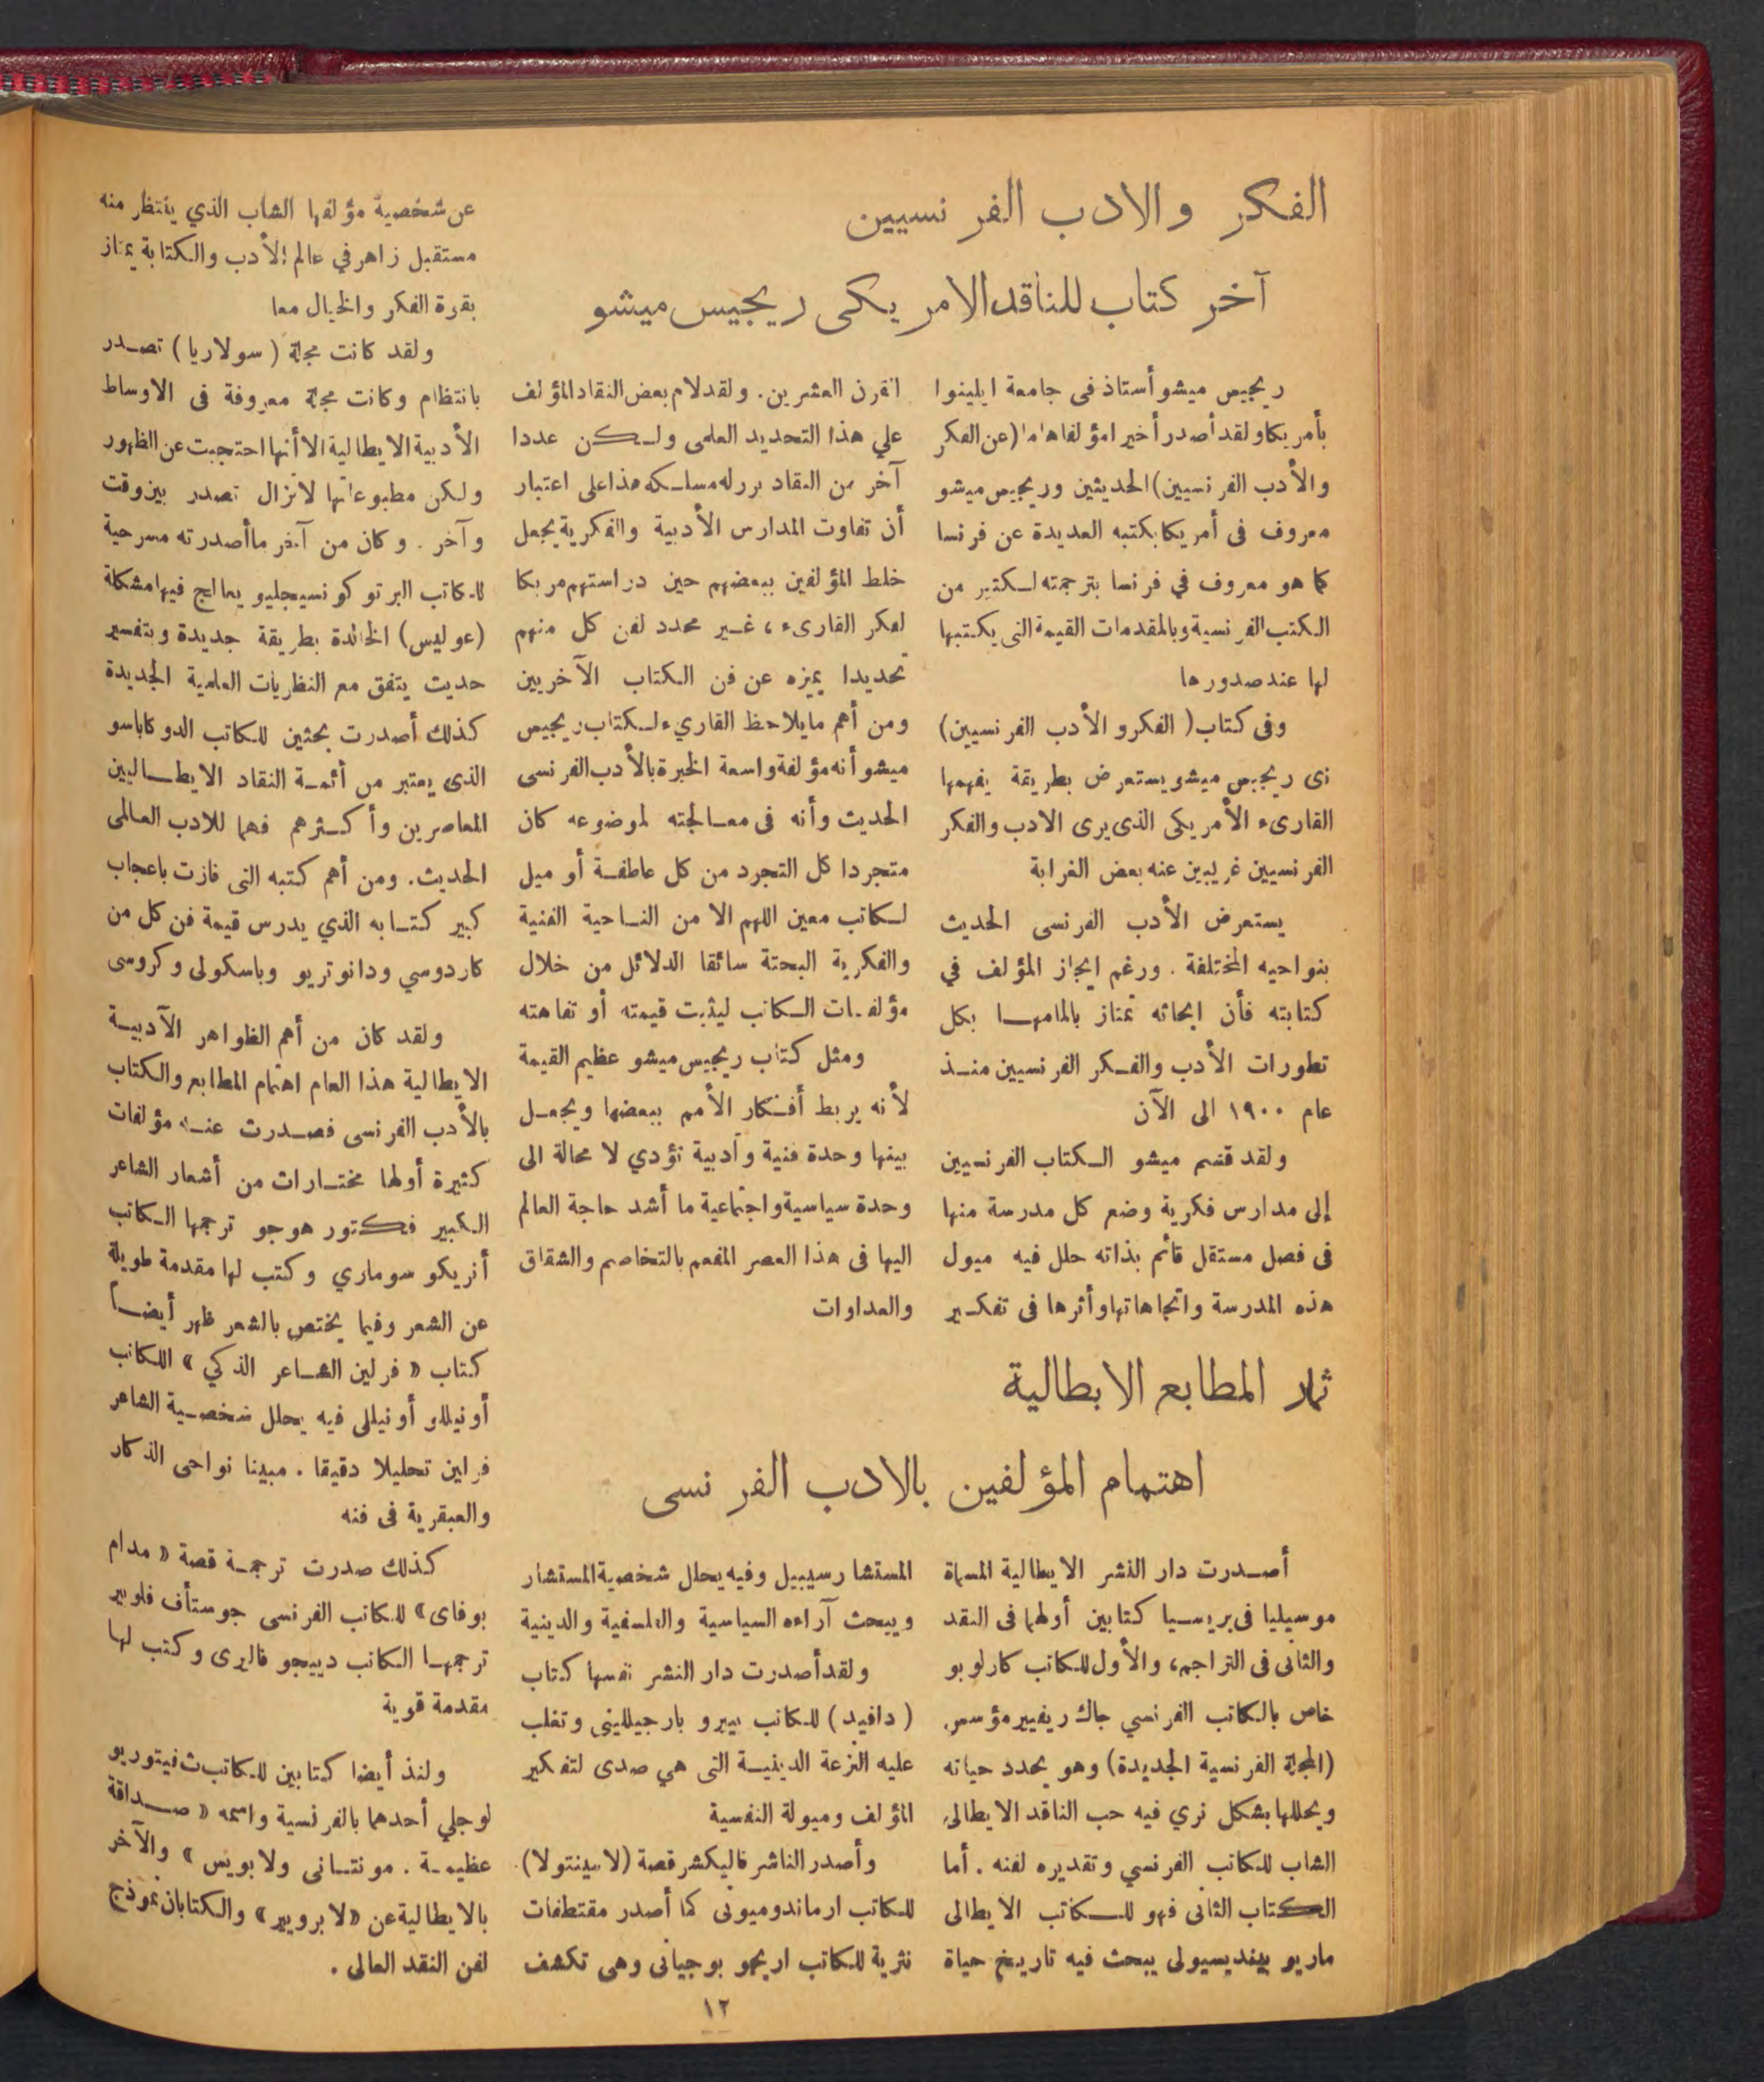 الفكر والادب الفرنسيين
آخر كتاب للناقد الامريكى ريجيس ميشو
ريجيس ميشو أستاذ فى جامعة ايلينوا
بأمريكا ولقد أصدر أخيرا مؤلفا هاما (عن الفكر
والأدب الفرنسيين) الحديثين وريجيس ميشو
معروف فى أمريكا بكتبه العديدة عن فرنسا
كما هو معروف في فرنسا بترجمته لكثير من
الكتب الفرنسية وبالمقدمات القيمة التى يكتبها
لها عند صدورها
وفى كتاب ( الفكر والأدب الفرنسيين)
نرى ريجيس ميشو يستعرض بطريقة يفهمها
القارىء الأمريكى الذى يرى الادب والفكر
الفرنسيين غريبين عنه بعض الغرابة
يستعرض الأدب الفرنسى الحديث
بنواحيه المختلفة . ورغم ايجاز المؤلف في
كتابته فأن ابحاثه تمتاز بالمامها بكل
تطورات الأدب والفكر الفرنسيين منذ
عام ١٩٠٠ الى الآن
ولقد قسم ميشو الكتاب الفرنسيين
إلى مدارس فكرية وضع كل مدرسة منها
فى فصل مستقل قائم بذاته حلل فيه ميول
هذه المدرسة واتجاهاتها وأثرها فى تفكير
القرن العشرين. ولقد لام بعض النقاد المؤلف
علي هذا التحديد العلمى ولكن عددا
آخر من النقاد برر له مسلكه هذا على اعتبار
أن تفاوت المدارس الأدبية والفكرية يجعل
خلط المؤلفين ببعضهم حين دراستهم مربكا
لفكر القارىء، غير محدد لفن كل منهم
تحديدا يميزه عن فن الكتاب الآخريين
ومن أهم ما يلاحظ القاريء لكتاب ريجيس
ميشو أنه مؤلفة واسعة الخبرة بالأدب الفرنسى
الحديث وأنه فى معالجته لموضوعه كان
متجردا كل التجرد من كل عاطفة أو ميل
لكاتب معين اللهم الا من الناحية الفنية
والفكرية البحتة سائقا الدلائل من خلال
مؤلفات الكاتب ليثبت قيمته أو تفاهته
ومثل كتاب ريجيس ميشو عظيم القيمة
لأنه يربط أفكار الأمم ببعضها ويجعل
بينها وحدة فنية وأدبية تؤدي لا محالة الى
وحدة سياسية واجتماعية ما أشد حاجة العالم
اليها فى هذا العصر المفعم بالتخاصم والشقاق
والعداوات
ثمار المطابع الايطالية
اهتمام المؤلفين بالادب الفرنسى
أصدرت دار النشر الايطالية المسماة
موسيليا فى بريسيا كتابين أولهما فى النقد
والثانى فى التراجم، والأول للكاتب كارلو بو
خاص بالكاتب الفرنسي جاك ريفيير مؤسس
(المجلة الفرنسية الجديدة) وهو يحدد حياته
ويحللها بشكل نري فيه حب الناقد الايطالى
الشاب للكاتب الفرنسي وتقديره لفنه . أما
الكتاب الثانى فهو للكاتب الايطالى
ماريو بينديسيولى يبحث فيه تاريخ حياة
المستشار سيبيل وفيه يحلل شخصية المستشار
ويبحث آراءه السياسية والفلسفية والدينية
ولقد أصدرت دار النشر نفسها كتاب
( دافيد ) للكاتب بييرو بارجيللينى وتغلب
عليه النزعة الدينية التى هي صدى لتفكير
المؤلف وميولة النفسية
وأصدر الناشر فاليكشر قصة (لاسينتولا)
للكاتب ارماندوميونى كما أصدر مقتطفات
نثرية للكاتب اريجو بوجيانى وهى تكشف
عن شخصية مؤلفها الشاب الذي ينتظر منه
مستقبل زاهر في عالم الأدب والكتابة يمتاز
بقوة الفكر والخيال معا
ولقد كانت مجلة ( سولاريا ) تصدر
بانتظام وكانت مجلة معروفة فى الاوساط
الأدبية الايطالية الا أنها احتجبت عن الظهور
ولكن مطبوعاتها لاتزال تصدر بين وقت
وآخر . وكان من آخر ما أصدرته مسرحية
للكاتب البرتو كونسيجليو يعالج فيها مشكلة
(عوليس) الخالدة بطريقة جديدة وبتفسير
حديث يتفق مع النظريات العلمية الجديدة
كذلك أصدرت بحثين للكاتب الدو كاباسو
الذى يعتبر من أئمة النقاد الايطاليين
المعاصرين وأكثرهم فهما للادب العالمى
الحديث. ومن أهم كتبه التى فازت باعجاب
كبير كتابه الذي يدرس قيمة فن كل من
كاردوسي ودانوتريو وباسكولى وكروسى
ولقد كان من أهم الظواهر الأدبية
الايطالية هذا العام اهتمام المطابع والكتاب
بالأدب الفرنسى فصدرت عنه مؤلفات
كثيرة أولها مختارات من أشعار الشاعر
الكبير فكتور هوجو ترجمها الكاتب
أنريكو سوماري وكتب لها مقدمة طويلة
عن الشعر وفيما يختص بالشعر ظهر أيضاً
كتاب « فرلين الشاعر الذكي » للكاتب
أونيللو أونيللى فيه يحلل شخصية الشاعر
فرلين تحليلا دقيقا . مبينا نواحى الذكاء
والعبقرية فى فنه
كذلك صدرت ترجمة قصة « مدام
بوفاى » للكاتب الفرنسى جوستاف فلوبير
ترجمها الكاتب دييجو فاليرى وكتب لها
مقدمة قوية
ولنذ أيضا كتابين للكاتب ث فيتوريو
لوجلي أحدهما بالفرنسية واسمه « صداقة
عظيمة . مونتانى ولابويس » والآخر
بالايطالية عن «لابرويير» والكتابان نموذج
لفن النقد العالى .
١٢